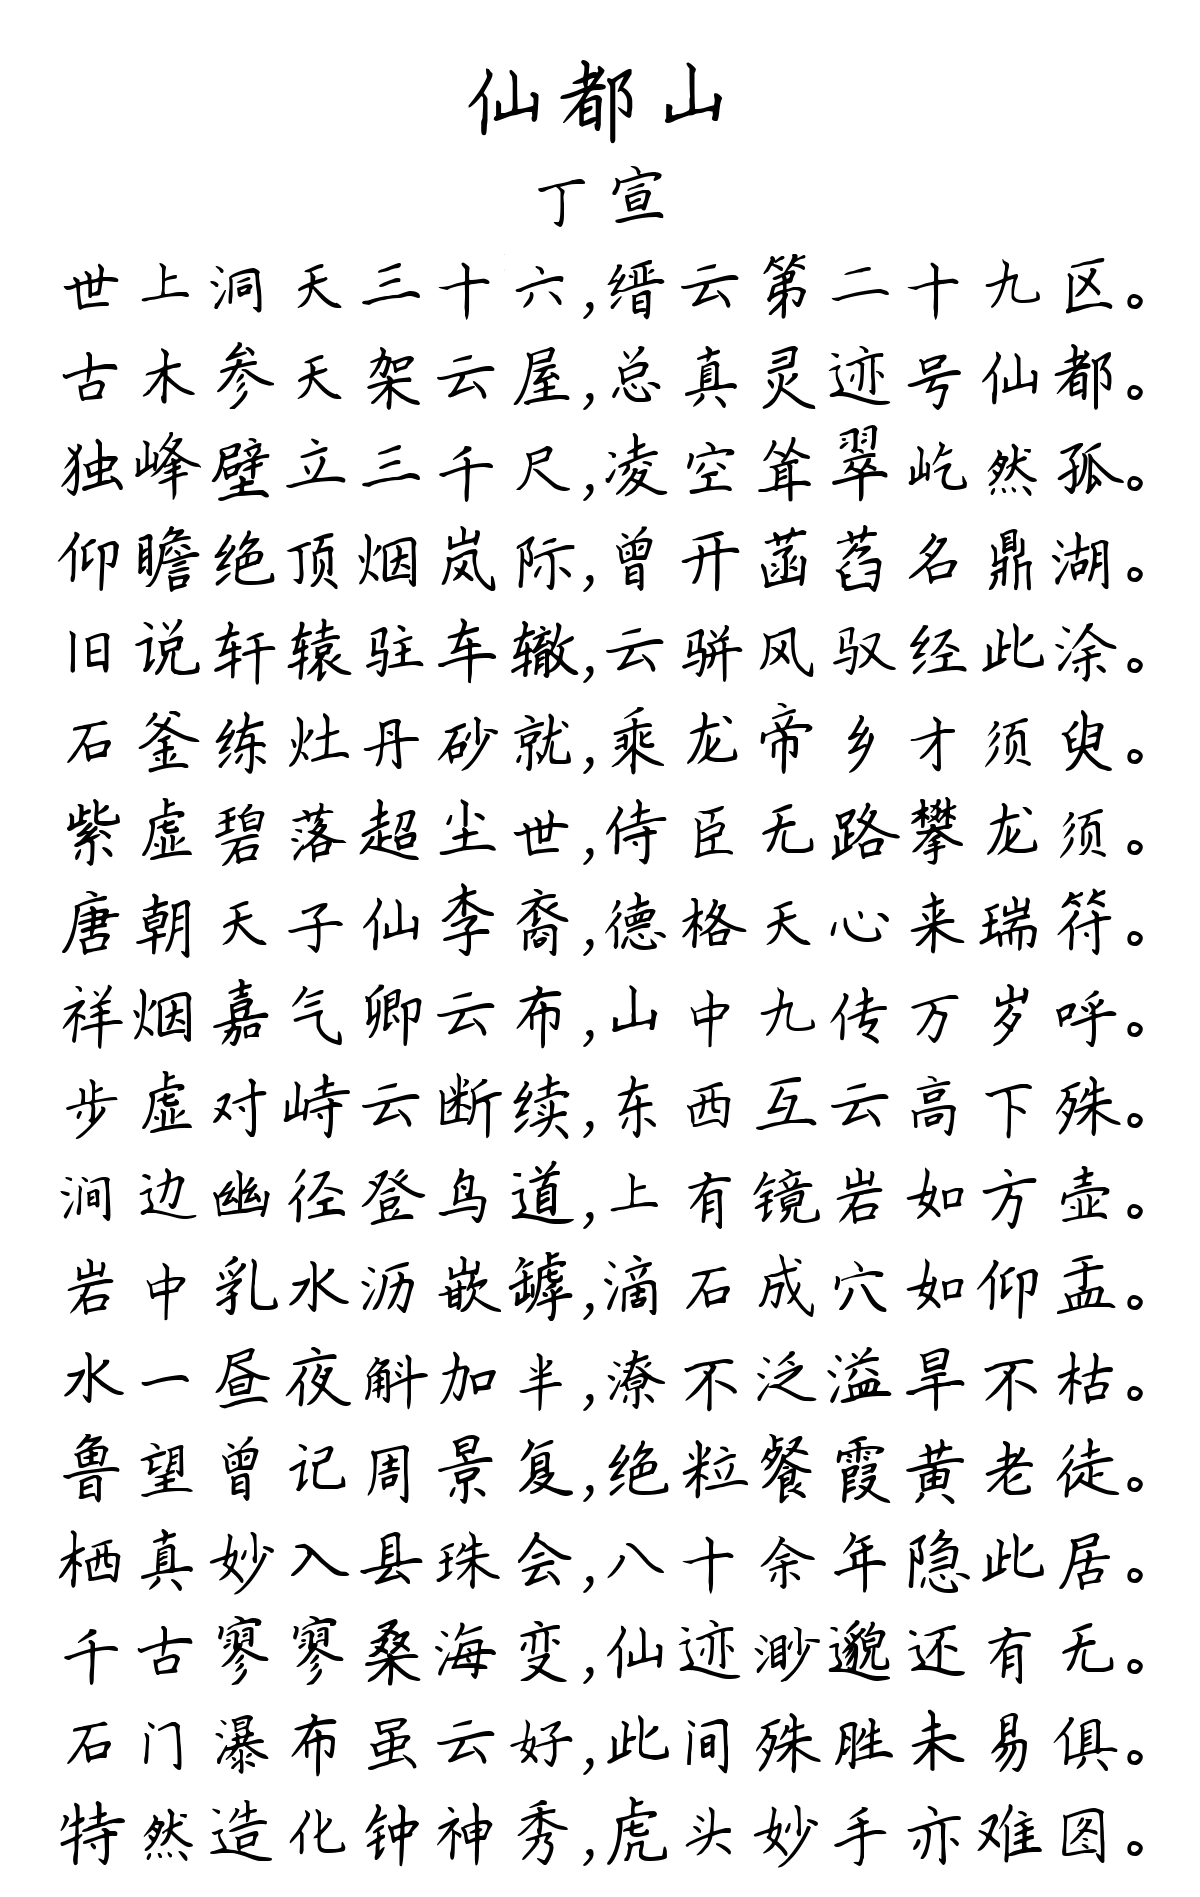 仙都山
丁宣
世上洞天三十六,缙云第二十九区。
古木参天架云屋,总真灵迹号仙都。
独峰壁立三千尺,凌空耸翠屹然孤。
仰瞻绝顶烟岚际,曾开菡萏名鼎湖。
旧说轩辕驻车辙,云骈风驭经此涂。
石釜练灶丹砂就,乘龙帝乡才须臾。
紫虚碧落超尘世,侍臣无路攀龙须。
唐朝天子仙李裔,德格天心来瑞符。
祥烟嘉气卿云布,山中九传万岁呼。
步虚对峙云断续,东西互云高下殊。
涧边幽径登鸟道,上有镜岩如方壶。
岩中乳水沥嵌罅,滴石成穴如仰盂。
水一昼夜斛加半,潦不泛溢旱不枯。
鲁望曾记周景复,绝粒餐霞黄老徒。
栖真妙入县珠会,八十余年隐此居。
千古寥寥桑海变,仙迹渺邈还有无。
石门瀑布虽云好,此间殊胜未易俱。
特然造化钟神秀,虎头妙手亦难图。